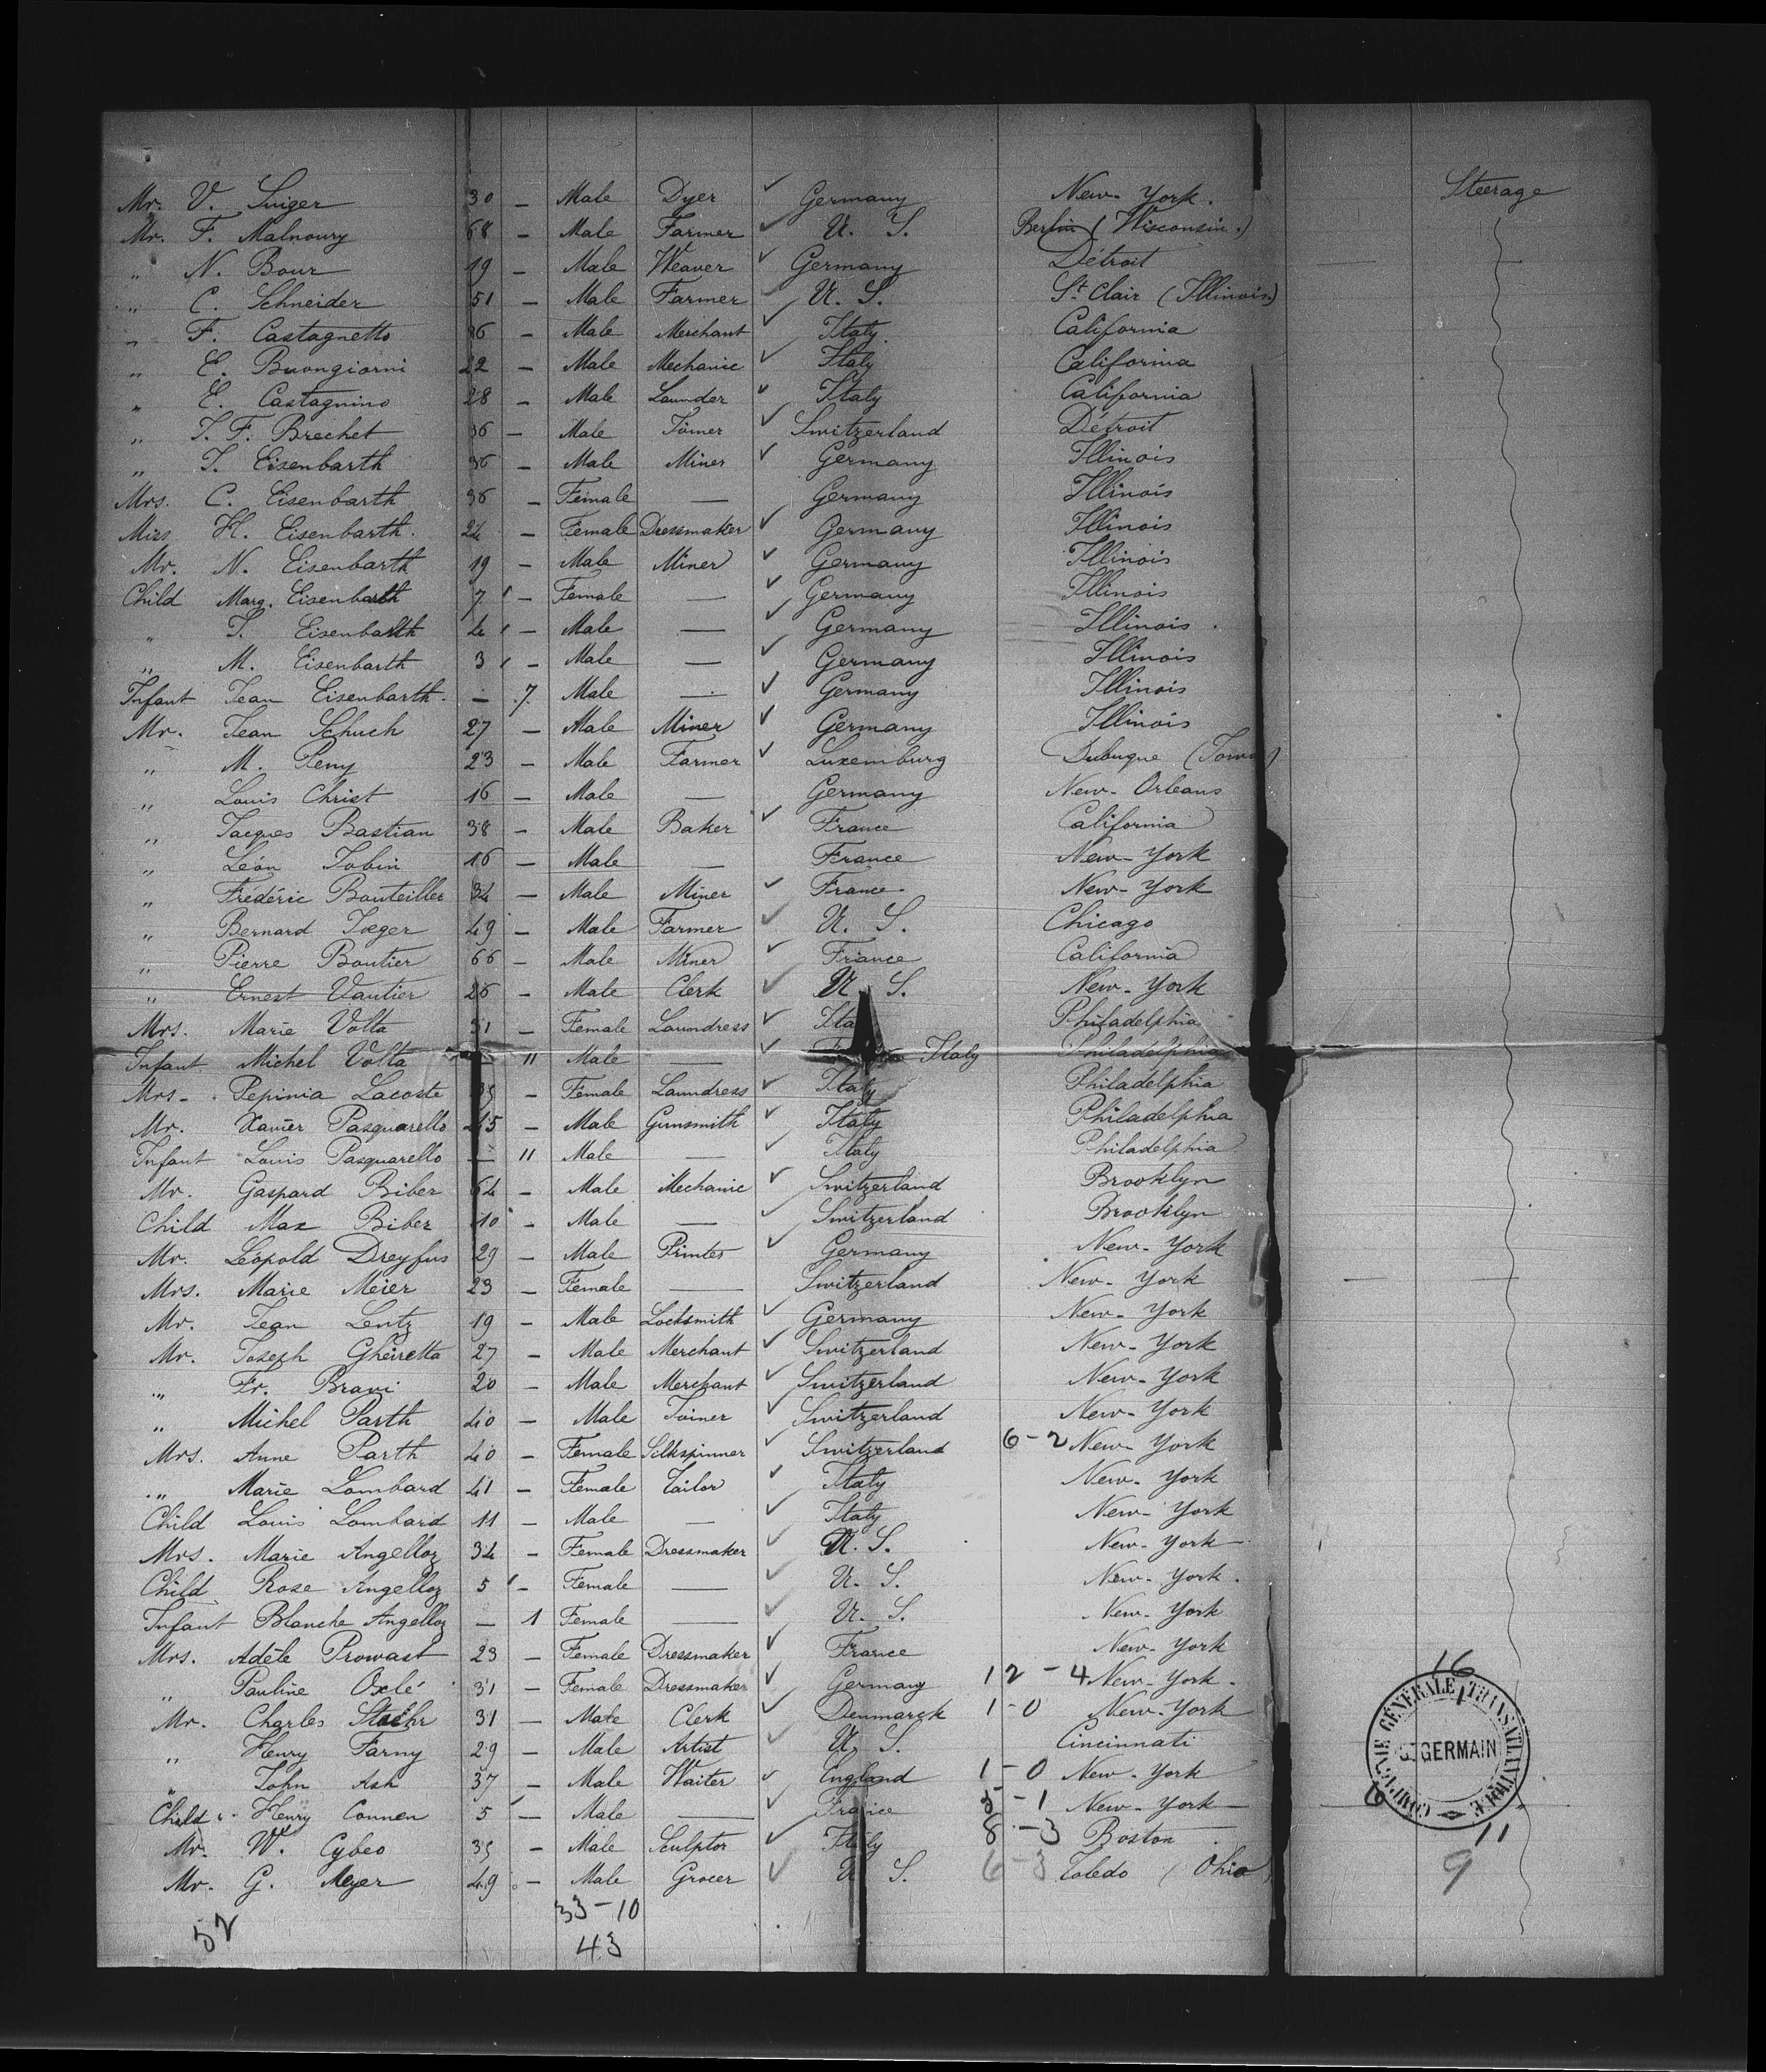 Mr. V. Singer 30 – Male Dyer ✓ Germany New-York. Steerage
Mr. F. Malnoury 68 – Male Farmer ✓ U. S. Berlin (Wisconsin.)
„ N. Bour 19 – Male Weaver ✓ Germany Détroit
„ C. Schneider 51 – Male Farmer ✓ U. S. St. Clair (Illinois)
„ F. Castagnetto 36 – Male Merchant ✓ Italy. California
„ E. Buongiorni 22 – Male Mechanic ✓ Italy California
„ E. Castagnino 28 – Male Launder ✓ Italy California
„ J. F. Brechet 36 – Male Joiner ✓ Switzerland Détroit
„ J. Eisenbarth 36 – Male Miner ✓ Germany Illinois
Mrs. C. Eisenbarth 36 – Female — Germany Illinois
Miss H. Eisenbarth. 24 – Female Dressmaker ✓ Germany Illinois
Mr. N. Eisenbarth 19 – Male Miner ✓ Germany Illinois
Child Marg. Eisenbarth 7 – Female — ✓ Germany Illinois
„ J. Eisenbarth 4 – Male — ✓ Germany Illinois.
„ M. Eisenbarth 3 – Male — ✓ Germany Illinois
Infant Jean Eisenbarth. – 7. Male — ✓ Germany Illinois
Mr. Jean Schuch 27 – Male Miner ✓ Germany Illinois
„ M. Peny 23 – Male Farmer ✓ Luxemburg Dubuque (Iowa)
„ Louis Christ 16 – Male — Germany New-Orleans
„ Jacques Bastian 38 – Male Baker ✓ France California
„ Léon Jobin 16 – Male — France New-York
„ Frédéric Bouteiller 34 – Male Miner ✓ France New-York
„ Bernard Jæger 49 – Male Farmer ✓ U. S. Chicago
„ Pierre Boutier 66 – Male Miner ✓ France California
„ Ernest Vautier 26 – Male Clerk ✓ U. S. New-York
Mrs. Marie Volta 31 – Female Laundress ✓ Ita Philadelphia
Infant Michel Volta – 11 Male — ✓ Italy Philadelphia
Mrs. Pepinia Lacoste 35 – Female Laundress ✓ Italy Philadelphia
Mr. Xavier Pasquarello 45 – Male Gunsmith ✓ Italy Philadelphia
Infant Louis Pasquarello – 11 Male — ✓ Italy Philadelphia
Mr. Gaspard Biber 64 – Male Mechanic ✓ Switzerland Brooklyn
Child Max Biber 10 – Male — ✓ Switzerland Brooklyn
Mr. Léopold Dreyfus 29 – Male Printer ✓ Germany New-York
Mrs. Marie Meier 23 – Female — Switzerland New-York
Mr. Jean Lentz 19 – Male Locksmith ✓ Germany New-York
Mr. Joseph Gheiretta 27 – Male Merchant ✓ Switzerland New-York
„ Fr. Bravi 20 – Male Merchant ✓ Switzerland New-York
„ Michel Parth 40 – Male Joiner ✓ Switzerland New-York
Mrs. Anne Parth 40 – Female Silkspinner ✓ Switzerland 6-2 New-York
„ Marie Lombard 41 – Female Tailor ✓ Italy New-York
Child Louis Lombard 11 – Male — ✓ Italy New-York
Mrs. Marie Angelloz 34 – Female Dressmaker ✓ U. S. New-York
Child Rose Angelloz 5 – Female — ✓ U. S. New-York.
Infant Blanche Angelloz – 1 Female — ✓ U. S. New-York
Mrs. Adèle Prowast 23 – Female Dressmaker ✓ France New-York
„ Pauline Oxlé 31 – Female Dressmaker ✓ Germany 12-4 New-York.
Mr. Charles Staehr 31 – Male Clerk ✓ Denmarck 1-0 New-York
„ Henry Farny 29 – Male Artist ✓ U. S. Cincinnati
„ John Ash 37 – Male Waiter ✓ England 1-0 New-York
Child Henry Connen 5 – Male — ✓ France 5-1 New-York
Mr. W. Cybeo 35 – Male Sculptor ✓ Italy 8-3 Boston
Mr. G. Meyer 49 – Male Grocer ✓ U S. 6-3 Toledo (Ohio)
52 33-10
43
16
COMPAGNIE GÉNÉRALE TRANSATLANTIQUE
ST GERMAIN
6
11
9